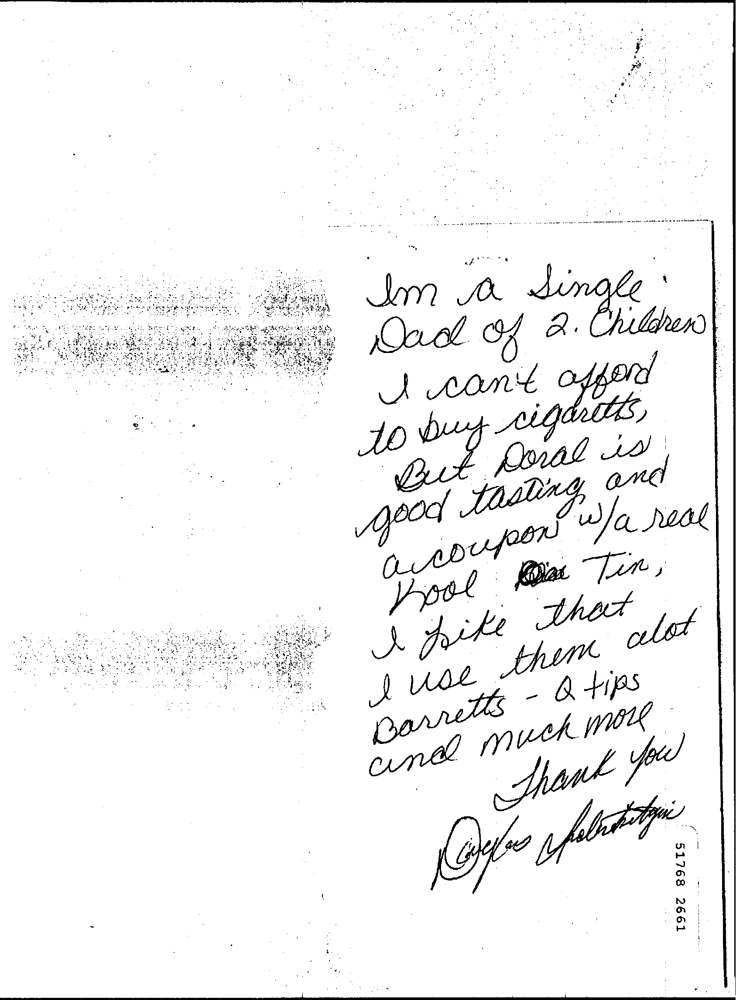 Im a Single
Dad of 2. Children
I can't afford
to buy cigaretts,
But Doral is
good tasting and
a coupon w/a real
Kool Tin,
I Like that
I use them alot
Barretts - Q tips
and much more
Thank you
Douglas
51768 2661